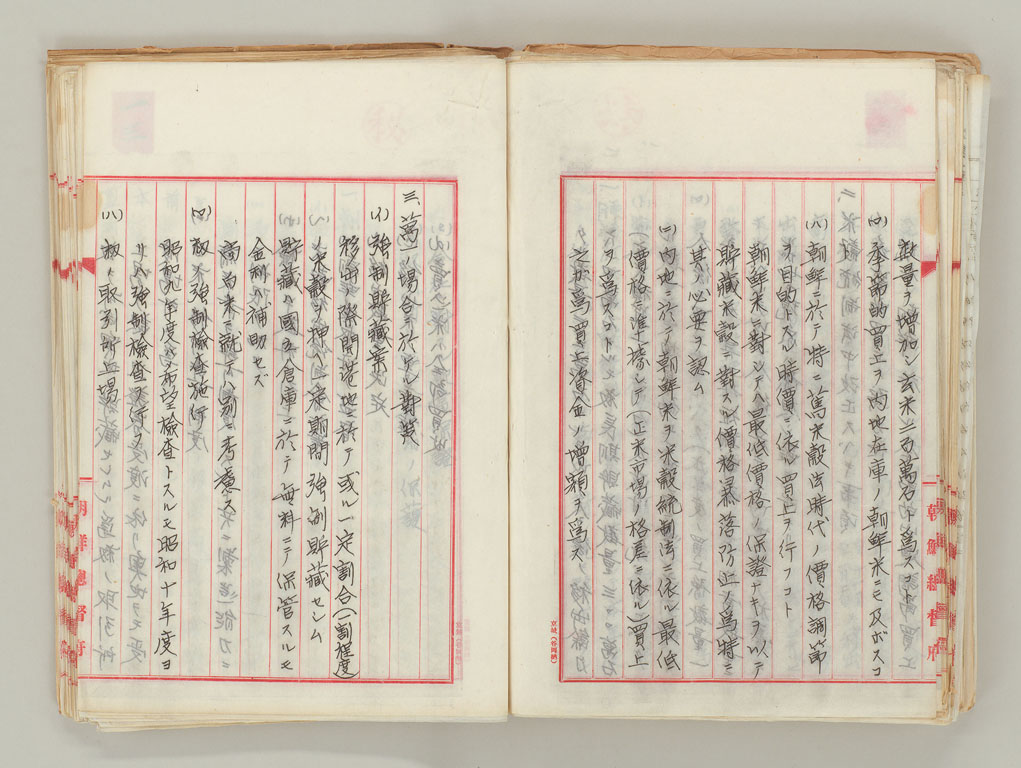 数量ヲ増加シ玄米三百萬石ト爲スコト
(ロ) 季節的買上ヲ内地在庫ノ朝鮮米ニモ及ボスコ
ト
(ハ) 朝鮮ニ於テ特ニ舊米穀法時代ノ價格調節
ヲ目的トスル時價ニ依ル買上ヲ行フコト
朝鮮米ニ對シテハ最低價格ノ保證ナキヲ以テ
貯藏米穀ニ對スル價格暴落防止ノ爲特ニ
其ノ必要ヲ認ム
(ニ) 内地ニ於テ朝鮮米ヲ米穀統制法ニ依ル最低
價格ニ準據シテ(正米市場ノ格差ニ依ル)買上
ヲ爲スコト
之ガ爲買上資金ノ増額ヲ爲ス
京城
朝鮮總督府
三、萬一ノ場合ニ於ケル對策
(イ) 強制貯藏案
移出ノ際開港地ニ於テ或ル一定割合(一割程度)
ノ米穀ヲ押ヘ一定期間強制貯藏セシム
貯藏ハ國立倉庫ニ於テ無料ニテ保管スルモ
金利ハ補助セズ
商白米ニ就テハ別ニ考慮ス
(ロ) 籾米強制檢査施行
昭和九年度ハ希望檢査トスルモ昭和十年度ヨ
リハ強制檢査ヲ行フ
(ハ) 籾ノ取引所上場
朝鮮總督府